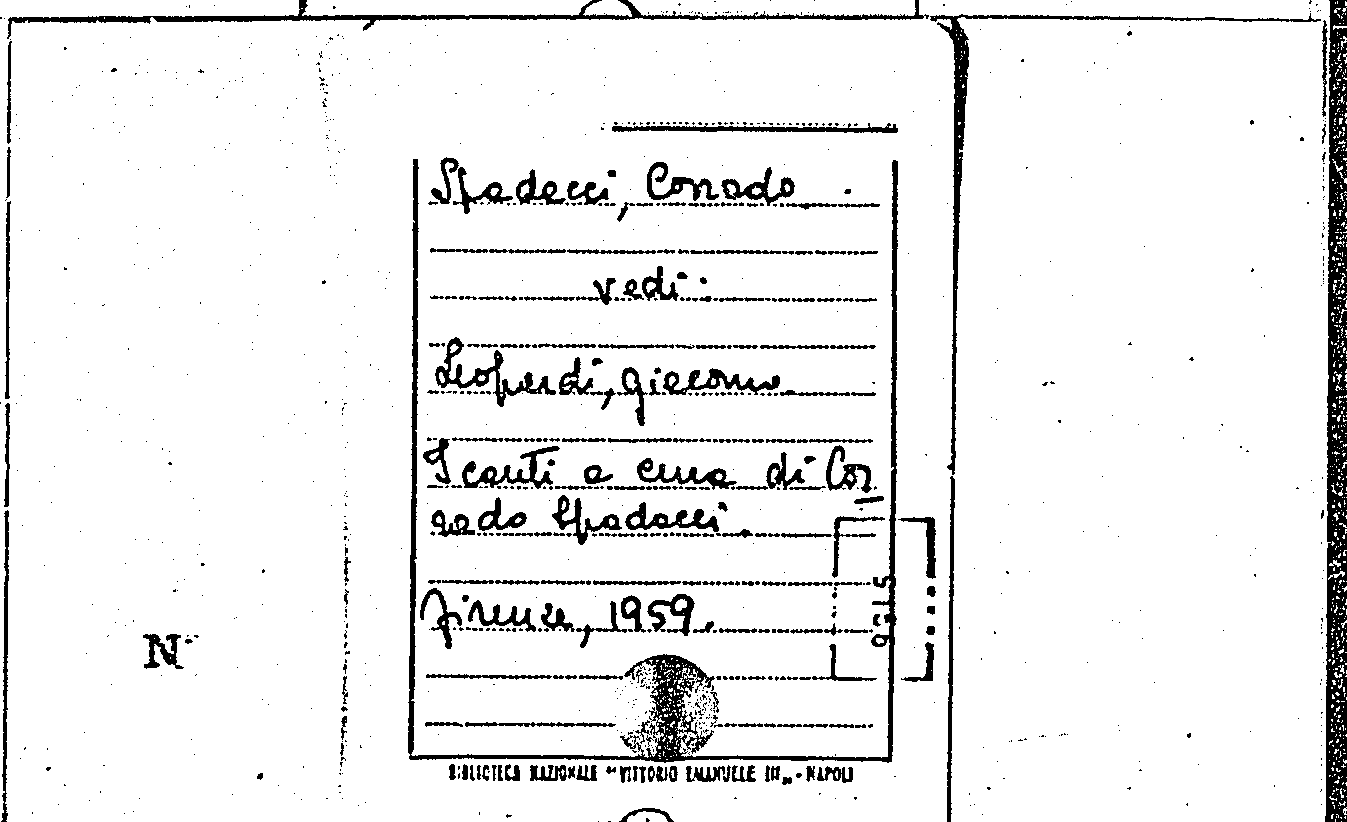 Spadacci, Corrado.
vedi:
Leopardi, Giacomo.
I canti a cura di Cor
rado Spadacci.
Firenze, 1959.
N
BIBLIOTECA NAZIONALE "VITTORIO EMANUELE III„ - NAPOLI